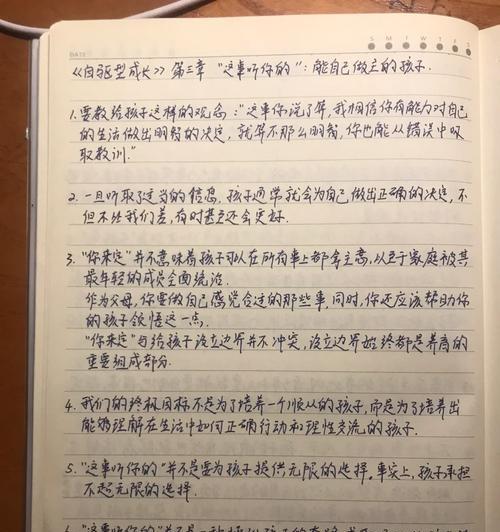 DATE
S M T W T F S
《自驱型成长》第三章 "这事听你的":能自己做主的孩子.
1. 要教给孩子这样的观念:"这事你说了算,我相信你有能力对自己
的生活做出明智的决定,就算不那么明智,你也能从错误中吸
取教训."
2. 一旦听取了适当的信息,孩子通常就会为自己做出正确的决定,不
但不比我们差,有时甚至还会更好.
3. "你来定"并不意味着孩子可以在所有事上都拿主意,以至于家庭被其
最年轻的成员全面统治.
作为父母,你要做自己感觉合适的那些事,同时,你还应该帮助你
的孩子领悟这一点.
"你来定"与给孩子设立边界并不冲突,设立边界始终都是养育的
重要组成部分.
4. 我们的终极目标不是为了培养一个顺从的孩子,而是为了培养出
能够理解在生活中如何正确行动和理性交流的孩子.
5. "这事听你的"并不是要为孩子提供无限的选择。事实上,孩子承担
不起无限的选择.